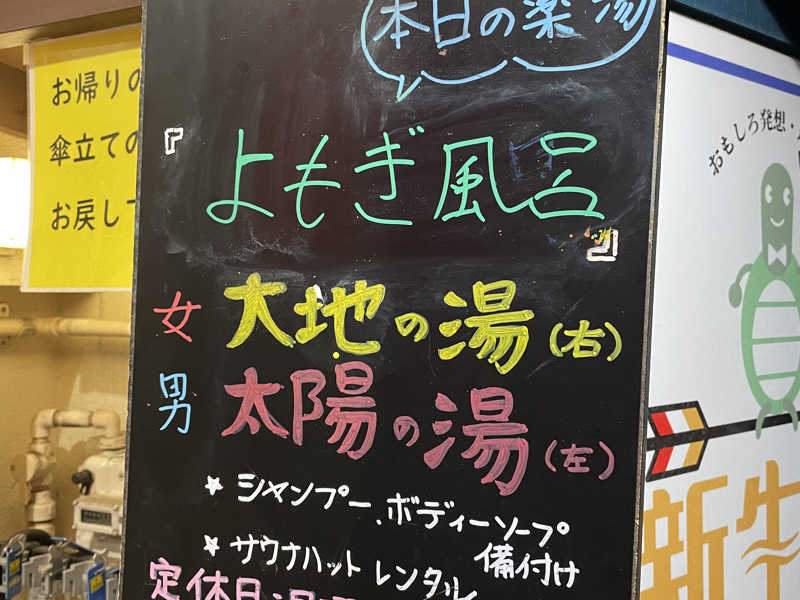 お帰りの
傘立ての
お戻して
本日の薬湯
『よもぎ風呂』
女 大地の湯(右)
男 太陽の湯(左)
★シャンプー、ボディーソープ
備付け
★サウナハット レンタル
定休日
おもしろ発想・
新牛